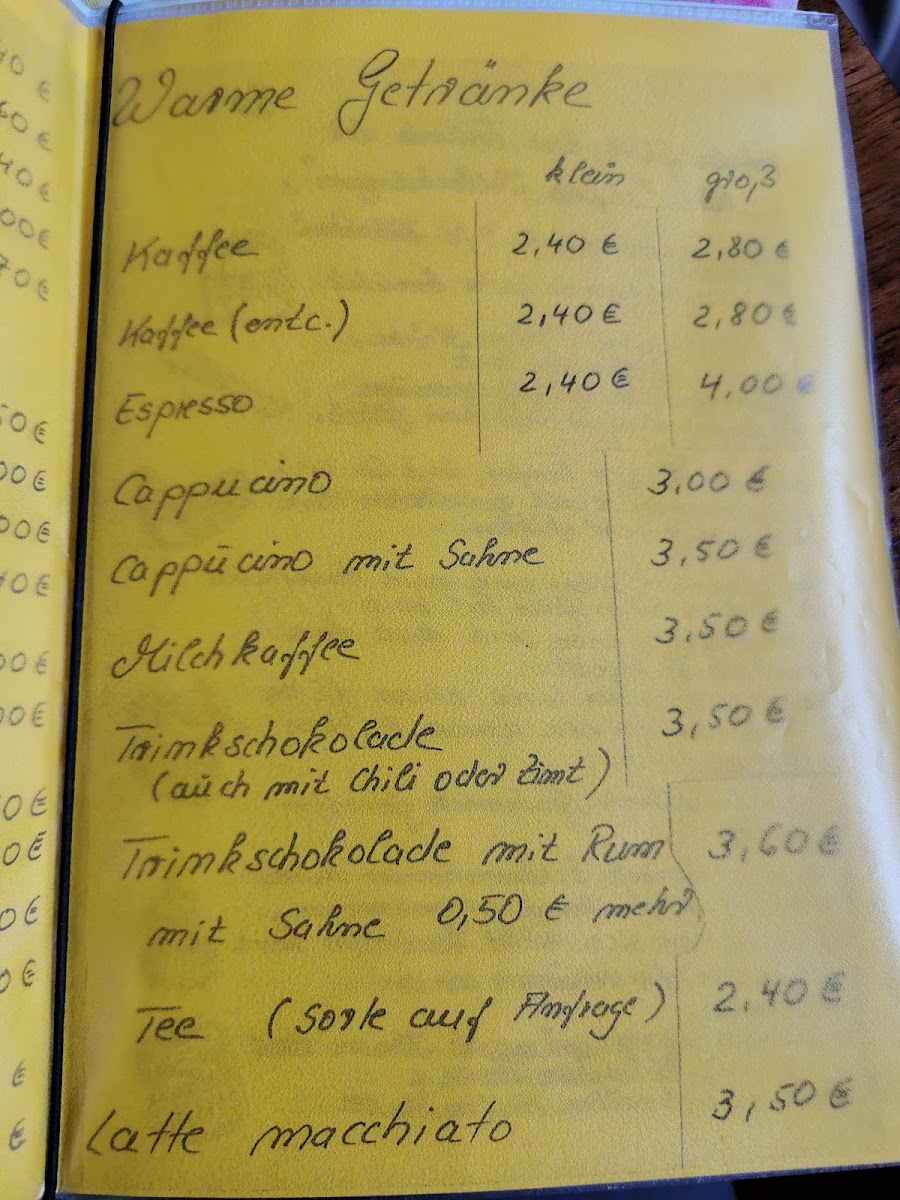 Warme Getränke
klein groß
Kaffee 2,40 € 2,80 €
Kaffee (entc.) 2,40 € 2,80 €
Espresso 2,40 € 4,00 €
Cappucino 3,00 €
Cappucino mit Sahne 3,50 €
Milchkaffee 3,50 €
Trinkschokolade 3,50 €
(auch mit Chili oder Zimt)
Trinkschokolade mit Rum 3,60 €
mit Sahne 0,50 € mehr
Tee (Sorte auf Anfrage) 2,40 €
Latte macchiato 3,50 €